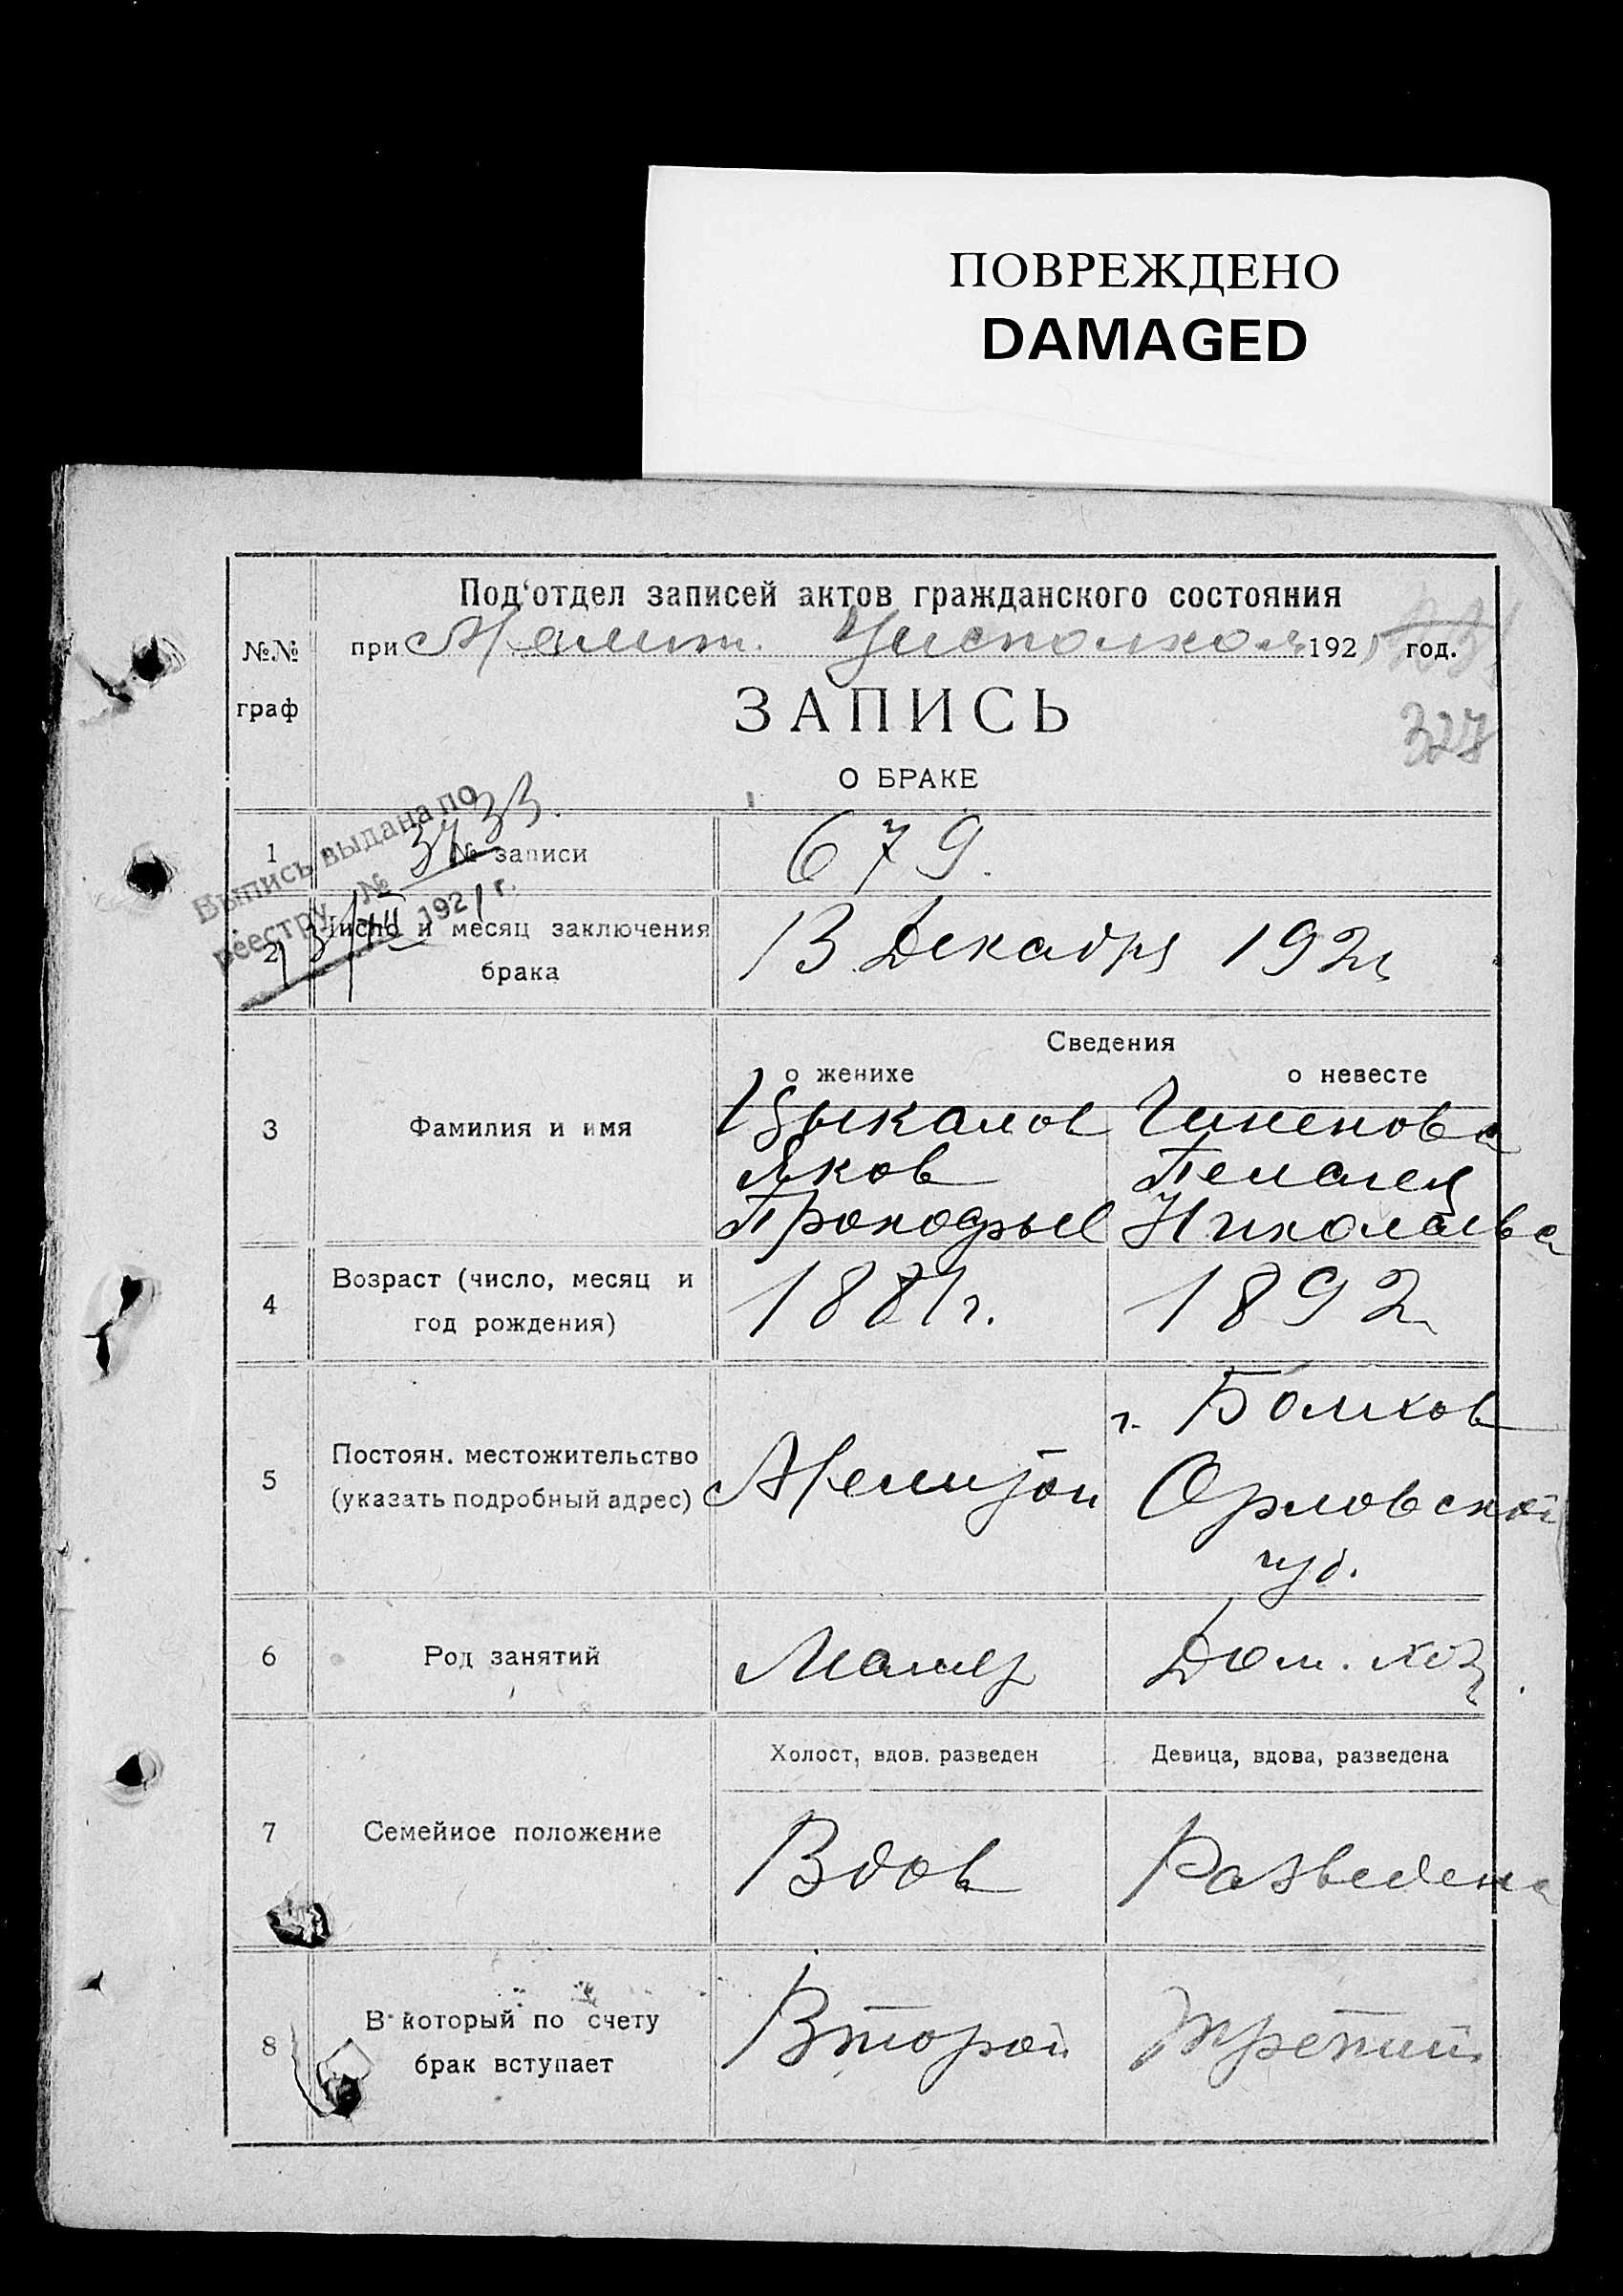 ПОВРЕЖДЕНО
DAMAGED
Под'отдел записей актов гражданского состояния
№№ при Мелит. Исполкоме 1921 год.
граф
ЗАПИСЬ
327
О БРАКЕ
Выпись выдана по
реестру № 3733.
13/XII 1921 г.
1 № записи 679.
2 Число и месяц заключения
брака
13 Декабря 1921
Сведения
о женихе о невесте
3 Фамилия и имя
Цыкалов
Яков
Прокофьев
Чиненова
Пелагея
Николаева
4 Возраст (число, месяц и
год рождения)
1881 г. 1892
5 Постоян. местожительство
(указать подробный адрес)
г. Болхов
Орловской
губ.
6 Род занятий
Маляр Дом. хоз.
Холост, вдов. разведен Девица, вдова, разведена
7 Семейное положение
Вдов Разведена
8 В который по счету
брак вступает
Второй Третий